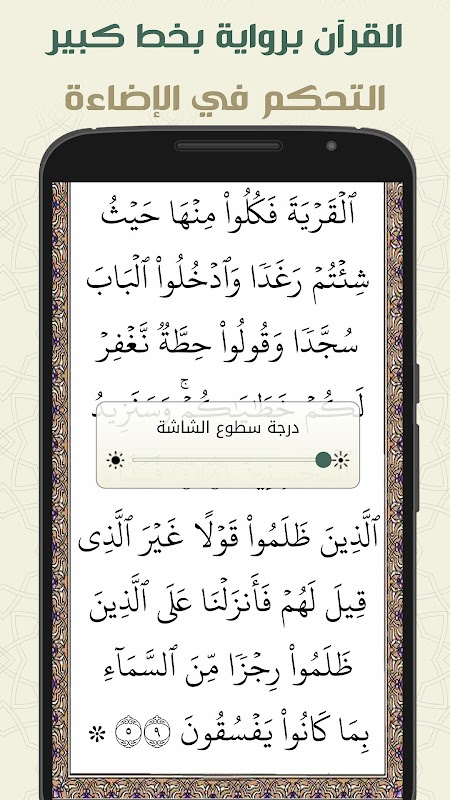 القرآن برواية بخط كبير
التحكم في الإضاءة
ٱلۡقَرۡيَةَ فَكُلُواْ مِنۡهَا حَيۡثُ
شِئۡتُمۡ رَغَدٗا وَٱدۡخُلُواْ ٱلۡبَابَ
سُجَّدٗا وَقُولُواْ حِطَّةٞ نَّغۡفِرۡ
لَكُمۡ خَطَٰيَٰكُمۡۚ وَسَنَزِيدُ
درجة سطوع الشاشة
ٱلَّذِينَ ظَلَمُواْ قَوۡلًا غَيۡرَ ٱلَّذِي
قِيلَ لَهُمۡ فَأَنزَلۡنَا عَلَى ٱلَّذِينَ
ظَلَمُواْ رِجۡزٗا مِّنَ ٱلسَّمَآءِ
بِمَا كَانُواْ يَفۡسُقُونَ ۝٩ ۝٥ ۞